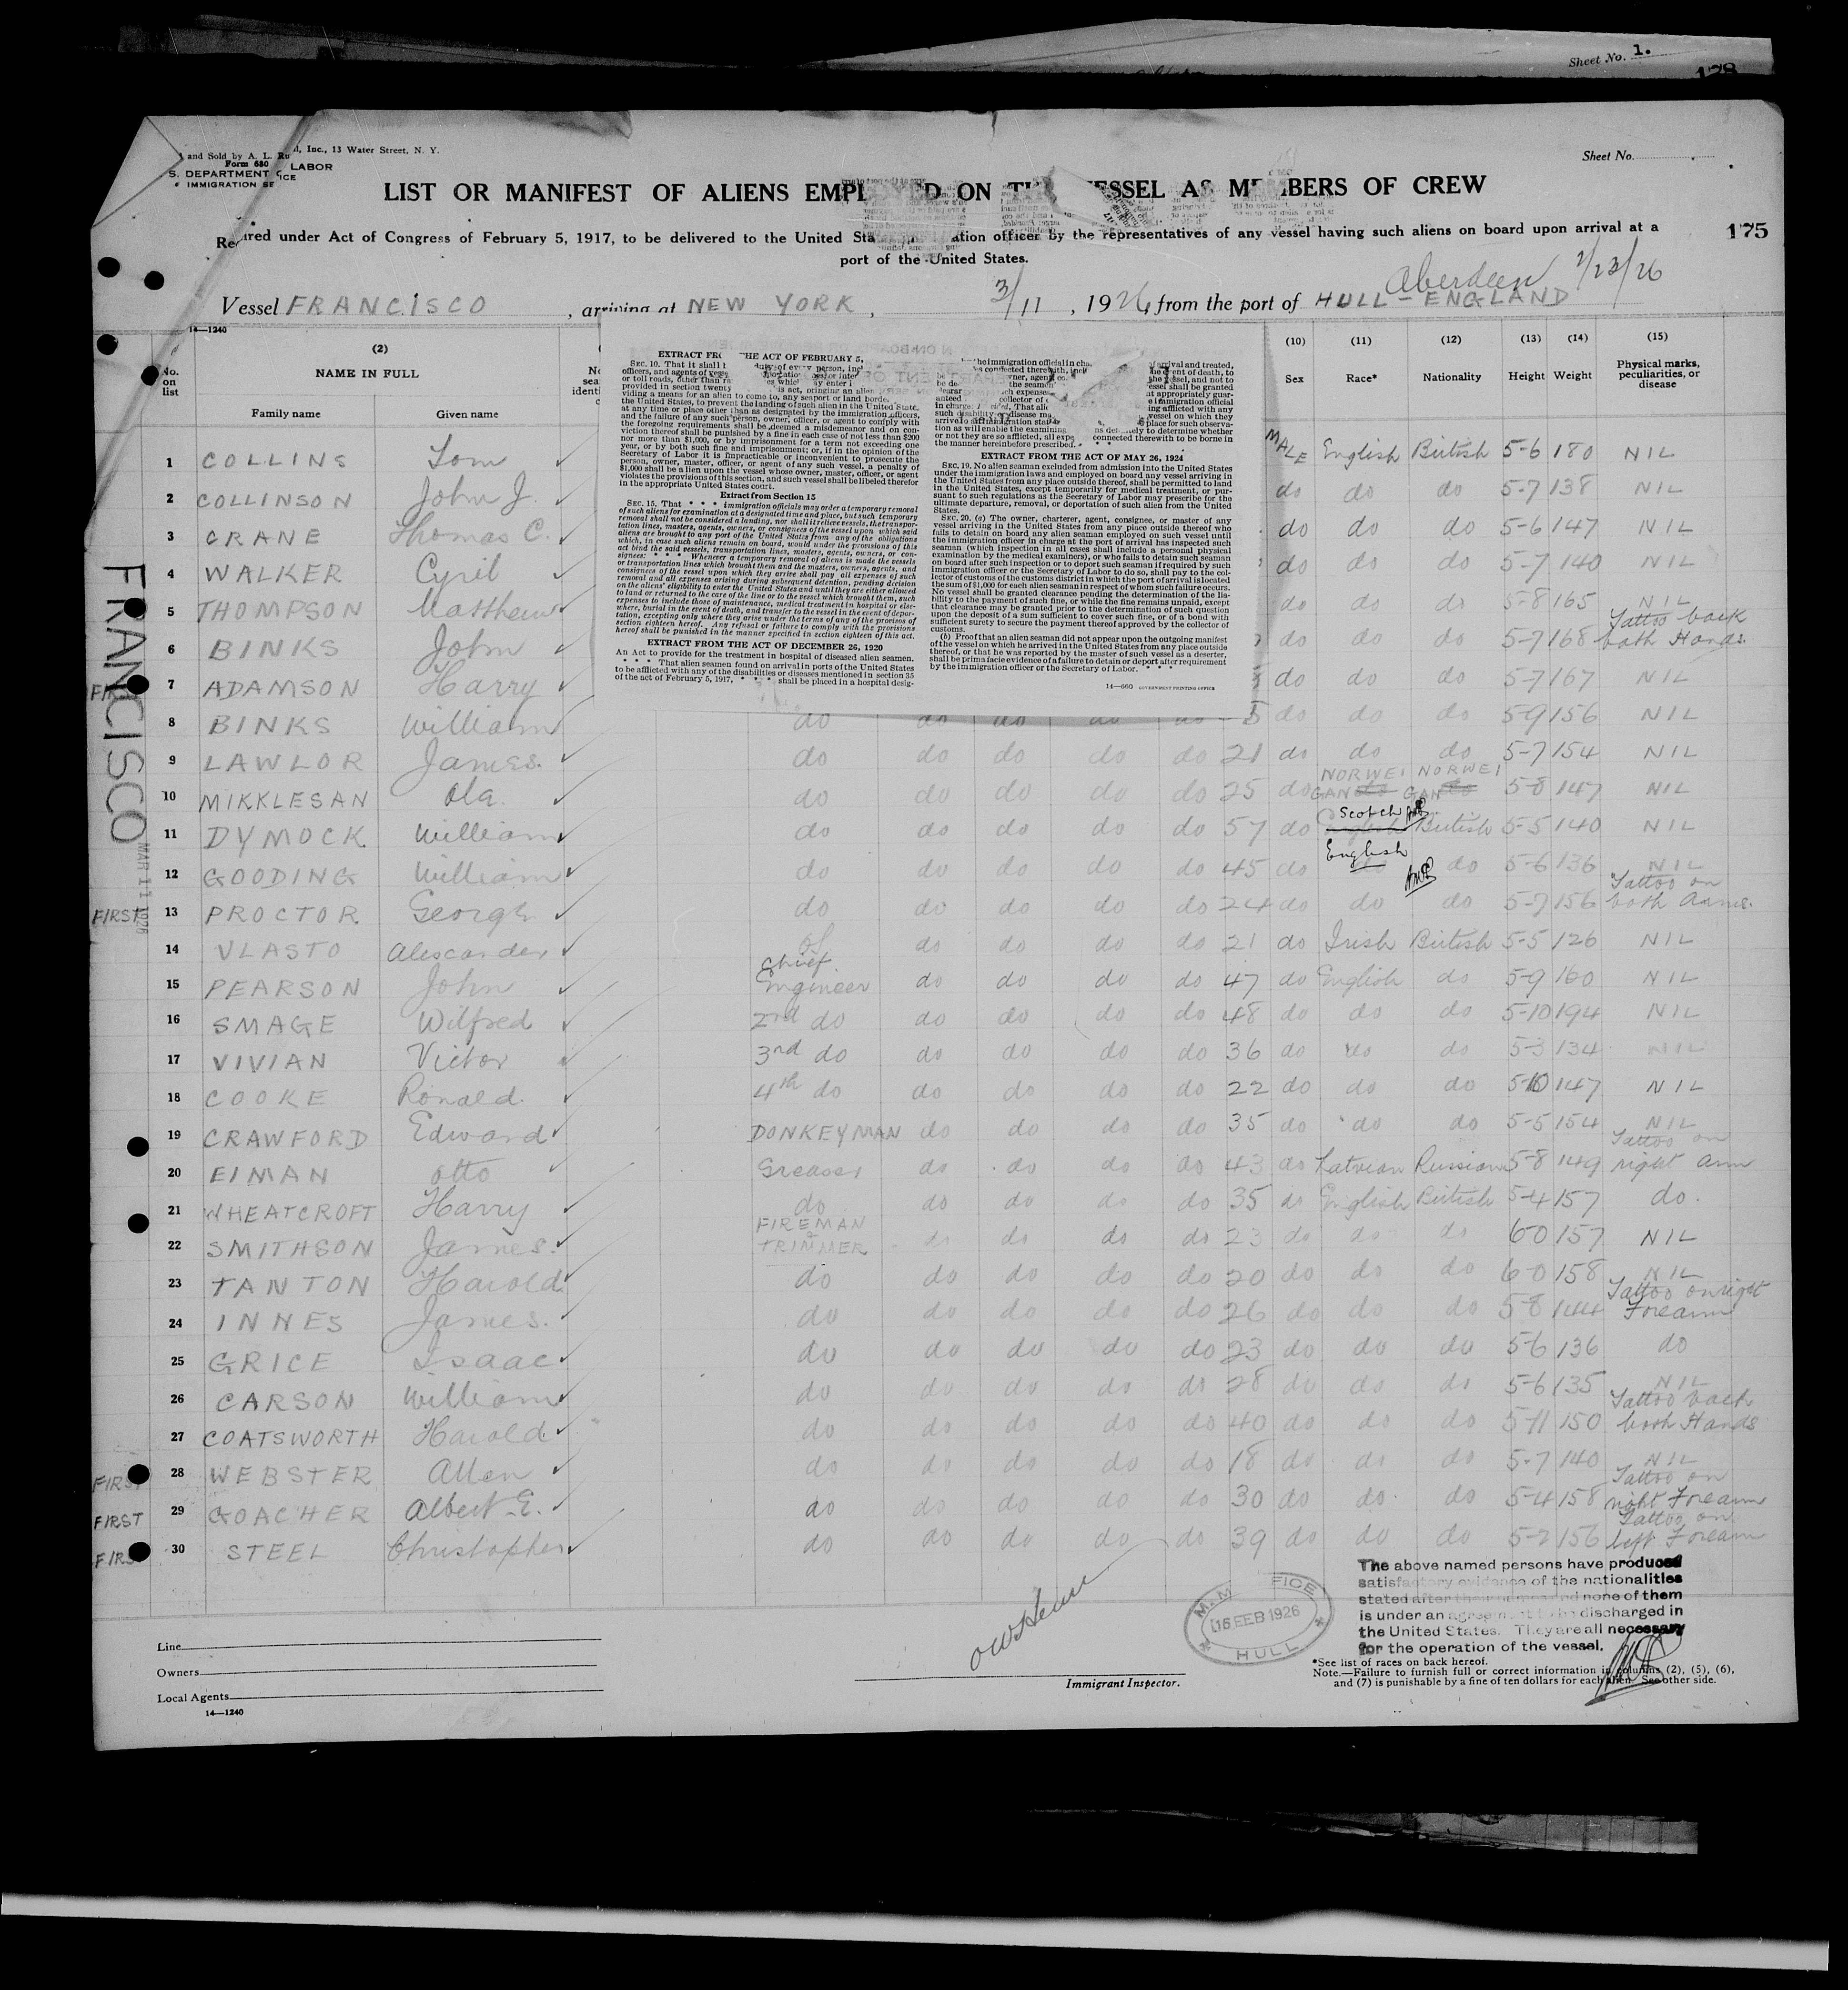 Sheet No. 1.
and Sold by A. L. Ru d, Inc., 13 Water Street, N. Y.
Form 680
S. DEPARTMENT LABOR
IMMIGRATION SE ICE
Sheet No.
LIST OR MANIFEST OF ALIENS EMPL ED ON TH VESSEL AS M BERS OF CREW
Re ired under Act of Congress of February 5, 1917, to be delivered to the United Sta ation officer by the representatives of any vessel having such aliens on board upon arrival at a
port of the United States.
175
Aberdeen 2/23/26
Vessel FRANCISCO, arriving at NEW YORK, 3/11, 1926, from the port of HULL - ENGLAND
14—1240
No. on list
(2)
NAME IN FULL
Family name Given name
(10) Sex
(11) Race*
(12) Nationality
(13) Height
(14) Weight
(15) Physical marks, peculiarities, or disease
EXTRACT FR THE ACT OF FEBRUARY 5,
nor more than $1,000, or by imprisonment for a term not exceeding one
year, or by both such fine and imprisonment; or, if in the opinion of the
Secretary of Labor it is impracticable or inconvenient to prosecute the
person, owner, master, officer, or agent of any such vessel, a penalty of
$1,000 shall be a lien upon the vessel whose owner, master, officer, or agent
violates the provisions of this section, and such vessel shall be libeled therefor
in the appropriate United States court.
Extract from Section 15
SEC. 15. That * * * immigration officials may order a temporary removal
of such aliens for examination at a designated time and place, but such temporary
removal shall not be considered a landing, nor shall it relieve vessels, the transpor-
tation lines, masters, agents, owners, or consignees of the vessel upon which said
aliens are brought to any port of the United States from any of the obligations
which, in case such aliens remain on board, would under the provisions of this
act bind the said vessels, transportation lines, masters, agents, owners, or con-
signees: * * * Whenever a temporary removal of aliens is made the vessels
or transportation lines which brought them and the masters, owners, agents, and
consignees of the vessel upon which they arrive shall pay all expenses of such
removal and all expenses arising during subsequent detention, pending decision
on the aliens' eligibility to enter the United States and until they are either allowed
to land or returned to the care of the line or to the vessel which brought them, such
expenses to include those of maintenance, medical treatment in hospital or else-
where, burial in the event of death, and transfer to the vessel in the event of depor-
tation, excepting only where they arise under the terms of any of the provisos of
section eighteen hereof. Any refusal or failure to comply with the provisions
hereof shall be punished in the manner specified in section eighteen of this act.
EXTRACT FROM THE ACT OF DECEMBER 26, 1920
An Act to provide for the treatment in hospital of diseased alien seamen.
* * * That alien seamen found on arrival in ports of the United States
to be afflicted with any of the disabilities or diseases mentioned in section 35
of the act of February 5, 1917, * * * shall be placed in a hospital desig-
or not they are so afflicted, all exp connected therewith to be borne in
the manner hereinbefore prescribed. * * *
EXTRACT FROM THE ACT OF MAY 26, 1924
SEC. 19. No alien seaman excluded from admission into the United States
under the immigration laws and employed on board any vessel arriving in
the United States from any place outside thereof, shall be permitted to land
in the United States, except temporarily for medical treatment, or pur-
suant to such regulations as the Secretary of Labor may prescribe for the
ultimate departure, removal, or deportation of such alien from the United
States.
SEC. 20. (a) The owner, charterer, agent, consignee, or master of any
vessel arriving in the United States from any place outside thereof who
fails to detain on board any alien seaman employed on such vessel until
the immigration officer in charge at the port of arrival has inspected such
seaman (which inspection in all cases shall include a personal physical
examination by the medical examiners), or who fails to detain such seaman
on board after such inspection or to deport such seaman if required by such
immigration officer or the Secretary of Labor to do so, shall pay to the col-
lector of customs of the customs district in which the port of arrival is located
the sum of $1,000 for each alien seaman in respect of whom such failure occurs.
No vessel shall be granted clearance pending the determination of the lia-
bility to the payment of such fine, or while the fine remains unpaid, except
that clearance may be granted prior to the determination of such question
upon the deposit of a sum sufficient to cover such fine, or of a bond with
sufficient surety to secure the payment thereof approved by the collector of
customs.
(b) Proof that an alien seaman did not appear upon the outgoing manifest
of the vessel on which he arrived in the United States from any place outside
thereof, or that he was reported by the master of such vessel as a deserter,
shall be prima facie evidence of a failure to detain or deport after requirement
by the immigration officer or the Secretary of Labor. * * *
14—660 GOVERNMENT PRINTING OFFICE
FRANCISCO
MAR 11 1926
1 COLLINS Tom MALE English British 5-6 180 NIL
2 COLLINSON John J. do do do 5-7 138 NIL
3 CRANE Thomas C. do do do 5-6 147 NIL
4 WALKER Cyril do do do 5-7 140 NIL
5 THOMPSON Matthew do do do 5-8 165 NIL
6 BINKS John do do do 5-7 168 Tattoo back both Hands.
7 ADAMSON Harry do do do 5-7 167 NIL
8 BINKS William do do do do do do do do 5-9 156 NIL
9 LAWLOR James. do do do do do 21 do do do 5-7 154 NIL
10 MIKKLESAN Ola. do do do do do 25 do NORWEIGAN NORWEIGAN 5-8 147 NIL
11 DYMOCK William do do do do do 57 do Scotch British 5-5 140 NIL
12 GOODING William do do do do do 45 do English do 5-6 136 NIL
FIRST 13 PROCTOR George do do do do do 24 do do do 5-7 156 Tattoo on both Arms.
14 VLASTO Alescander do do do do do 21 do Irish British 5-5 126 NIL
15 PEARSON John Chief Engineer do do do do 47 do English do 5-9 160 NIL
16 SMAGE Wilfred 2nd do do do do do 48 do do do 5-10 194 NIL
17 VIVIAN Victor 3rd do do do do do 36 do do do 5-3 134 NIL
18 COOKE Ronald. 4th do do do do do 22 do do do 5-10 147 NIL
19 CRAWFORD Edward DONKEYMAN do do do do 35 do do do 5-5 154 NIL
20 EIMAN Otto Greaser do do do do 43 do Latvian Russian 5-8 149 Tattoo on right arm
21 WHEATCROFT Harry do do do do do 35 do English British 5-4 157 do.
22 SMITHSON James. FIREMAN & TRIMMER do do do do 23 do do do 6-0 157 NIL
23 TANTON Harold do do do do do 20 do do do 6-0 158 NIL
24 INNES James. do do do do do 26 do do do 5-8 144 Tattoo on right Forearm
25 GRICE Isaac do do do do do 23 do do do 5-6 136 do
26 CARSON William do do do do do 28 do do do 5-6 135 NIL
27 COATSWORTH Harold do do do do do 40 do do do 5-11 150 Tattoo back both Hands
FIRST 28 WEBSTER Allen do do do do do 18 do do do 5-7 140 NIL
FIRST 29 GOACHER Albert E. do do do do do 30 do do do 5-4 158 Tattoo on right Forearm
FIRST 30 STEEL Christopher do do do do do 39 do do do 5-2 156 Tattoo on left Foream
The above named persons have produced
satisfactory evidence of the nationalities
stated after their names and none of them
is under an agreement to be discharged in
the United States. They are all necessary
for the operation of the vessel.
M.M. OFFICE
16 FEB 1926
HULL
Line
Owners
Local Agents
14—1240
Immigrant Inspector.
*See list of races on back hereof.
Note.—Failure to furnish full or correct information in columns (2), (5), (6),
and (7) is punishable by a fine of ten dollars for each alien. See other side.